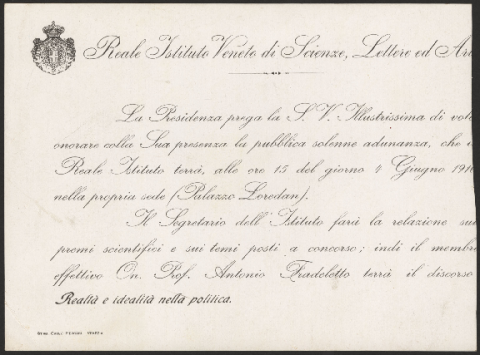 Reale Istituto Veneto di Scienze, Lettere ed Ar
La Presidenza prega la S. V. Illustrissima di vole
onorare colla Sua presenza la pubblica solenne adunanza, che i
Reale Istituto terrà, alle ore 15 del giorno 4 Giugno 191
nella propria sede (Palazzo Loredan).
Il Segretario dell'Istituto farà la relazione sui
premi scientifici e sui temi posti a concorso; indi il membro
effettivo On. Prof. Antonio Fradeletto terrà il discorso
Realtà e idealità nella politica.
VENEZIA